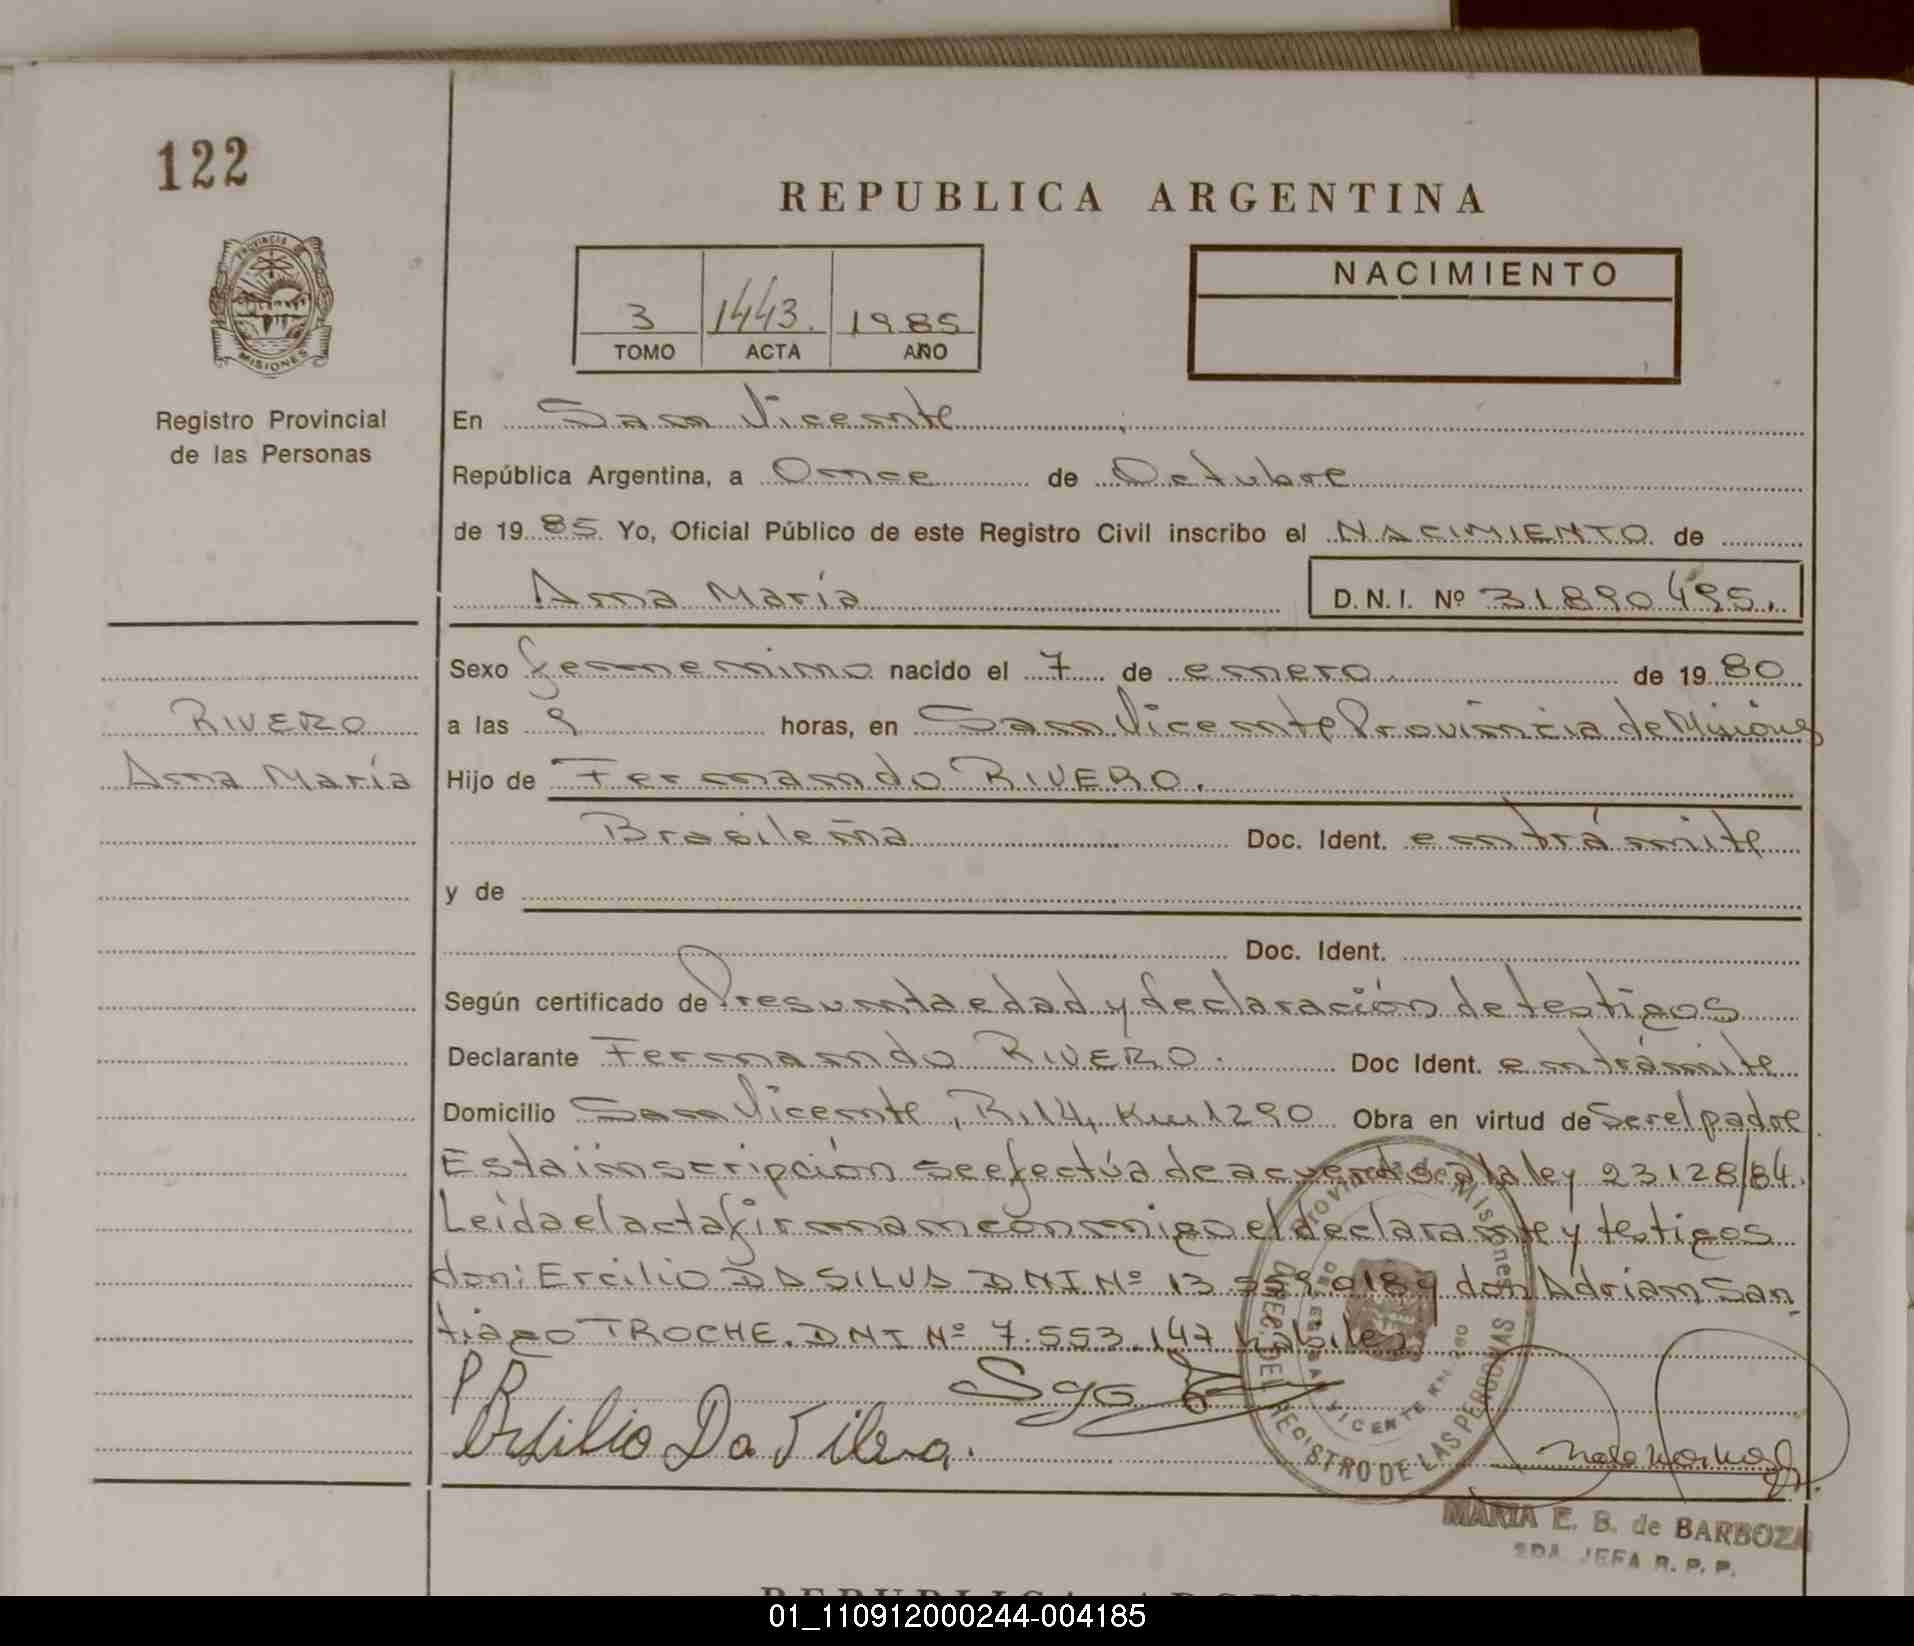 122
REPUBLICA ARGENTINA
PROVINCIA DE
MISIONES
3 1443. 1985
TOMO ACTA AÑO
NACIMIENTO
Registro Provincial
de las Personas
En San Vicente
República Argentina, a Once de Octubre
de 19 85 Yo, Oficial Público de este Registro Civil inscribo el NACIMIENTO de
Ana María D.N.I. Nº 31890495.
Sexo femenino nacido el 7 de enero de 19 80
RIVERO
a las 9 horas, en San Vicente Provincia de Misiones
Ana María
Hijo de Fernando RIVERO.
Brasileña Doc. Ident. en trámite
y de
Doc. Ident.
Según certificado de Presunta edad y declaración de testigos
Declarante Fernando RIVERO. Doc Ident. en trámite
Domicilio San Vicente, R.14, Km 1290 Obra en virtud de Ser el padre
Esta inscripción se efectúa de acuerdo a la ley 23128/84.
Leida el acta firman conmigo el declarante y testigos
don: Ercilio DA SILVA DNI Nº 13.559.018 y don Adrian San-
tiago TROCHE. DNI Nº 7.553.147 habiles
PROVINCIA DE MISIONES
DIREC. DEL REGISTRO DE LAS PERSONAS
VICENTE
P R
Sgo
Ersilio Da Silva.
MARIA E. B. de BARBOZA
2DA. JEFA R. P. P.
REPUBLICA ARGENTINA
01_110912000244-004185